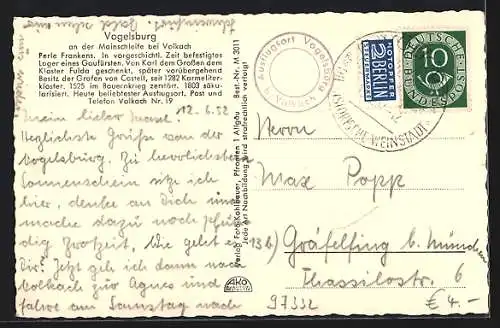 Vogelsburg
an der Mainschleife bei Volkach
Perle Frankens. In vorgeschichtl. Zeit befestigtes
Lager eines Gaufürsten. Von Karl dem Großen dem
Kloster Fulda geschenkt, später vorübergehend
Besitz der Grafen von Castell, seit 1282 Karmeliter-
kloster. 1525 im Bauernkrieg zerstört. 1803 säku-
larisiert. Heute beliebtester Ausflugsort. Post und
Telefon Volkach Nr. 19
12.6.52
Mein lieber
Herzlichste Grüße von der
Vogelsburg. Zu herrlichstem
Sonnenschein sitz ich
hier, denke an Dich und
mache dazu noch pfun-
dig Brotzeit. Wie geht es
Dir? Jetzt geh ich dann nach
Volkach zur Agnes und
fahre am Samstag nach
Schweinfurt. Bald
Verlag Foto Kohlbauer, Pfronten i. Allgäu Best.-Nr. M 3011
Jede Art Nachbildung wird strafrechtlich verfolgt
AKO
Ausflugsort Vogelsburg
b. Volkach
NOTOPFER
2 BERLIN
STEUERMARKE
10
DEUTSCHE BUNDESPOST
WEINSTADT
Herrn
Max Popp
13b) Gräfelfing b. München
Thassilostr. 6
97332
€ 4.-